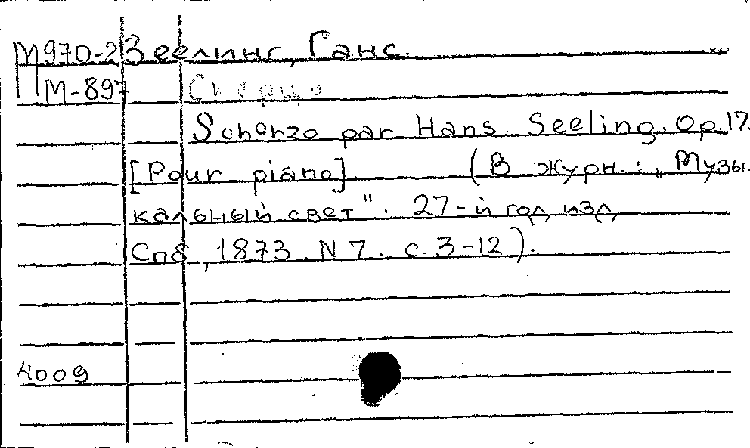 М970-2 Зеелинг, Ганс.
ПМ-897 Скерцо
Scherzo par Hans Seeling. Op. 17.
[Pour piano] (В журн.: „Музы-
кальный свет". 27-й год изд.
Спб., 1873. N 7. с. 3-12).
4009